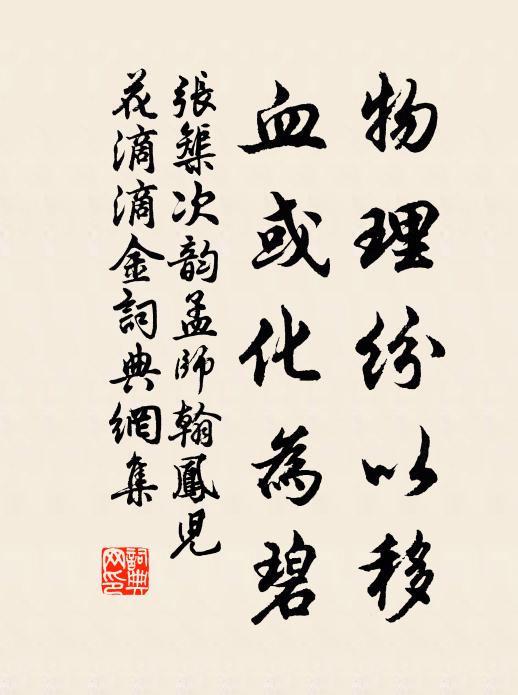 物理紛以移
血或化為碧
張榘次韵孟師翰鳳児
花滴滴金詞典網集
詞典网印